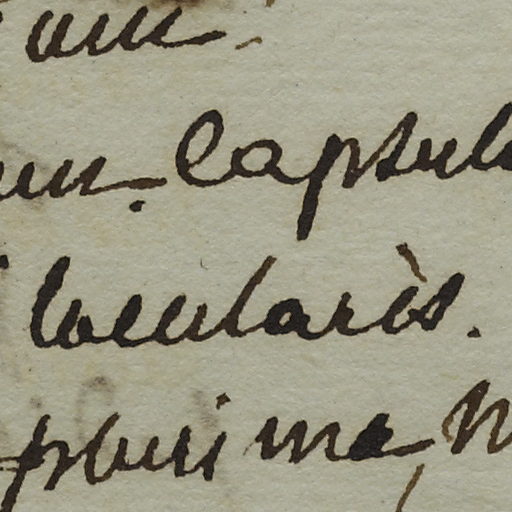 um.
um. Capsul
locularis.
plurima, m